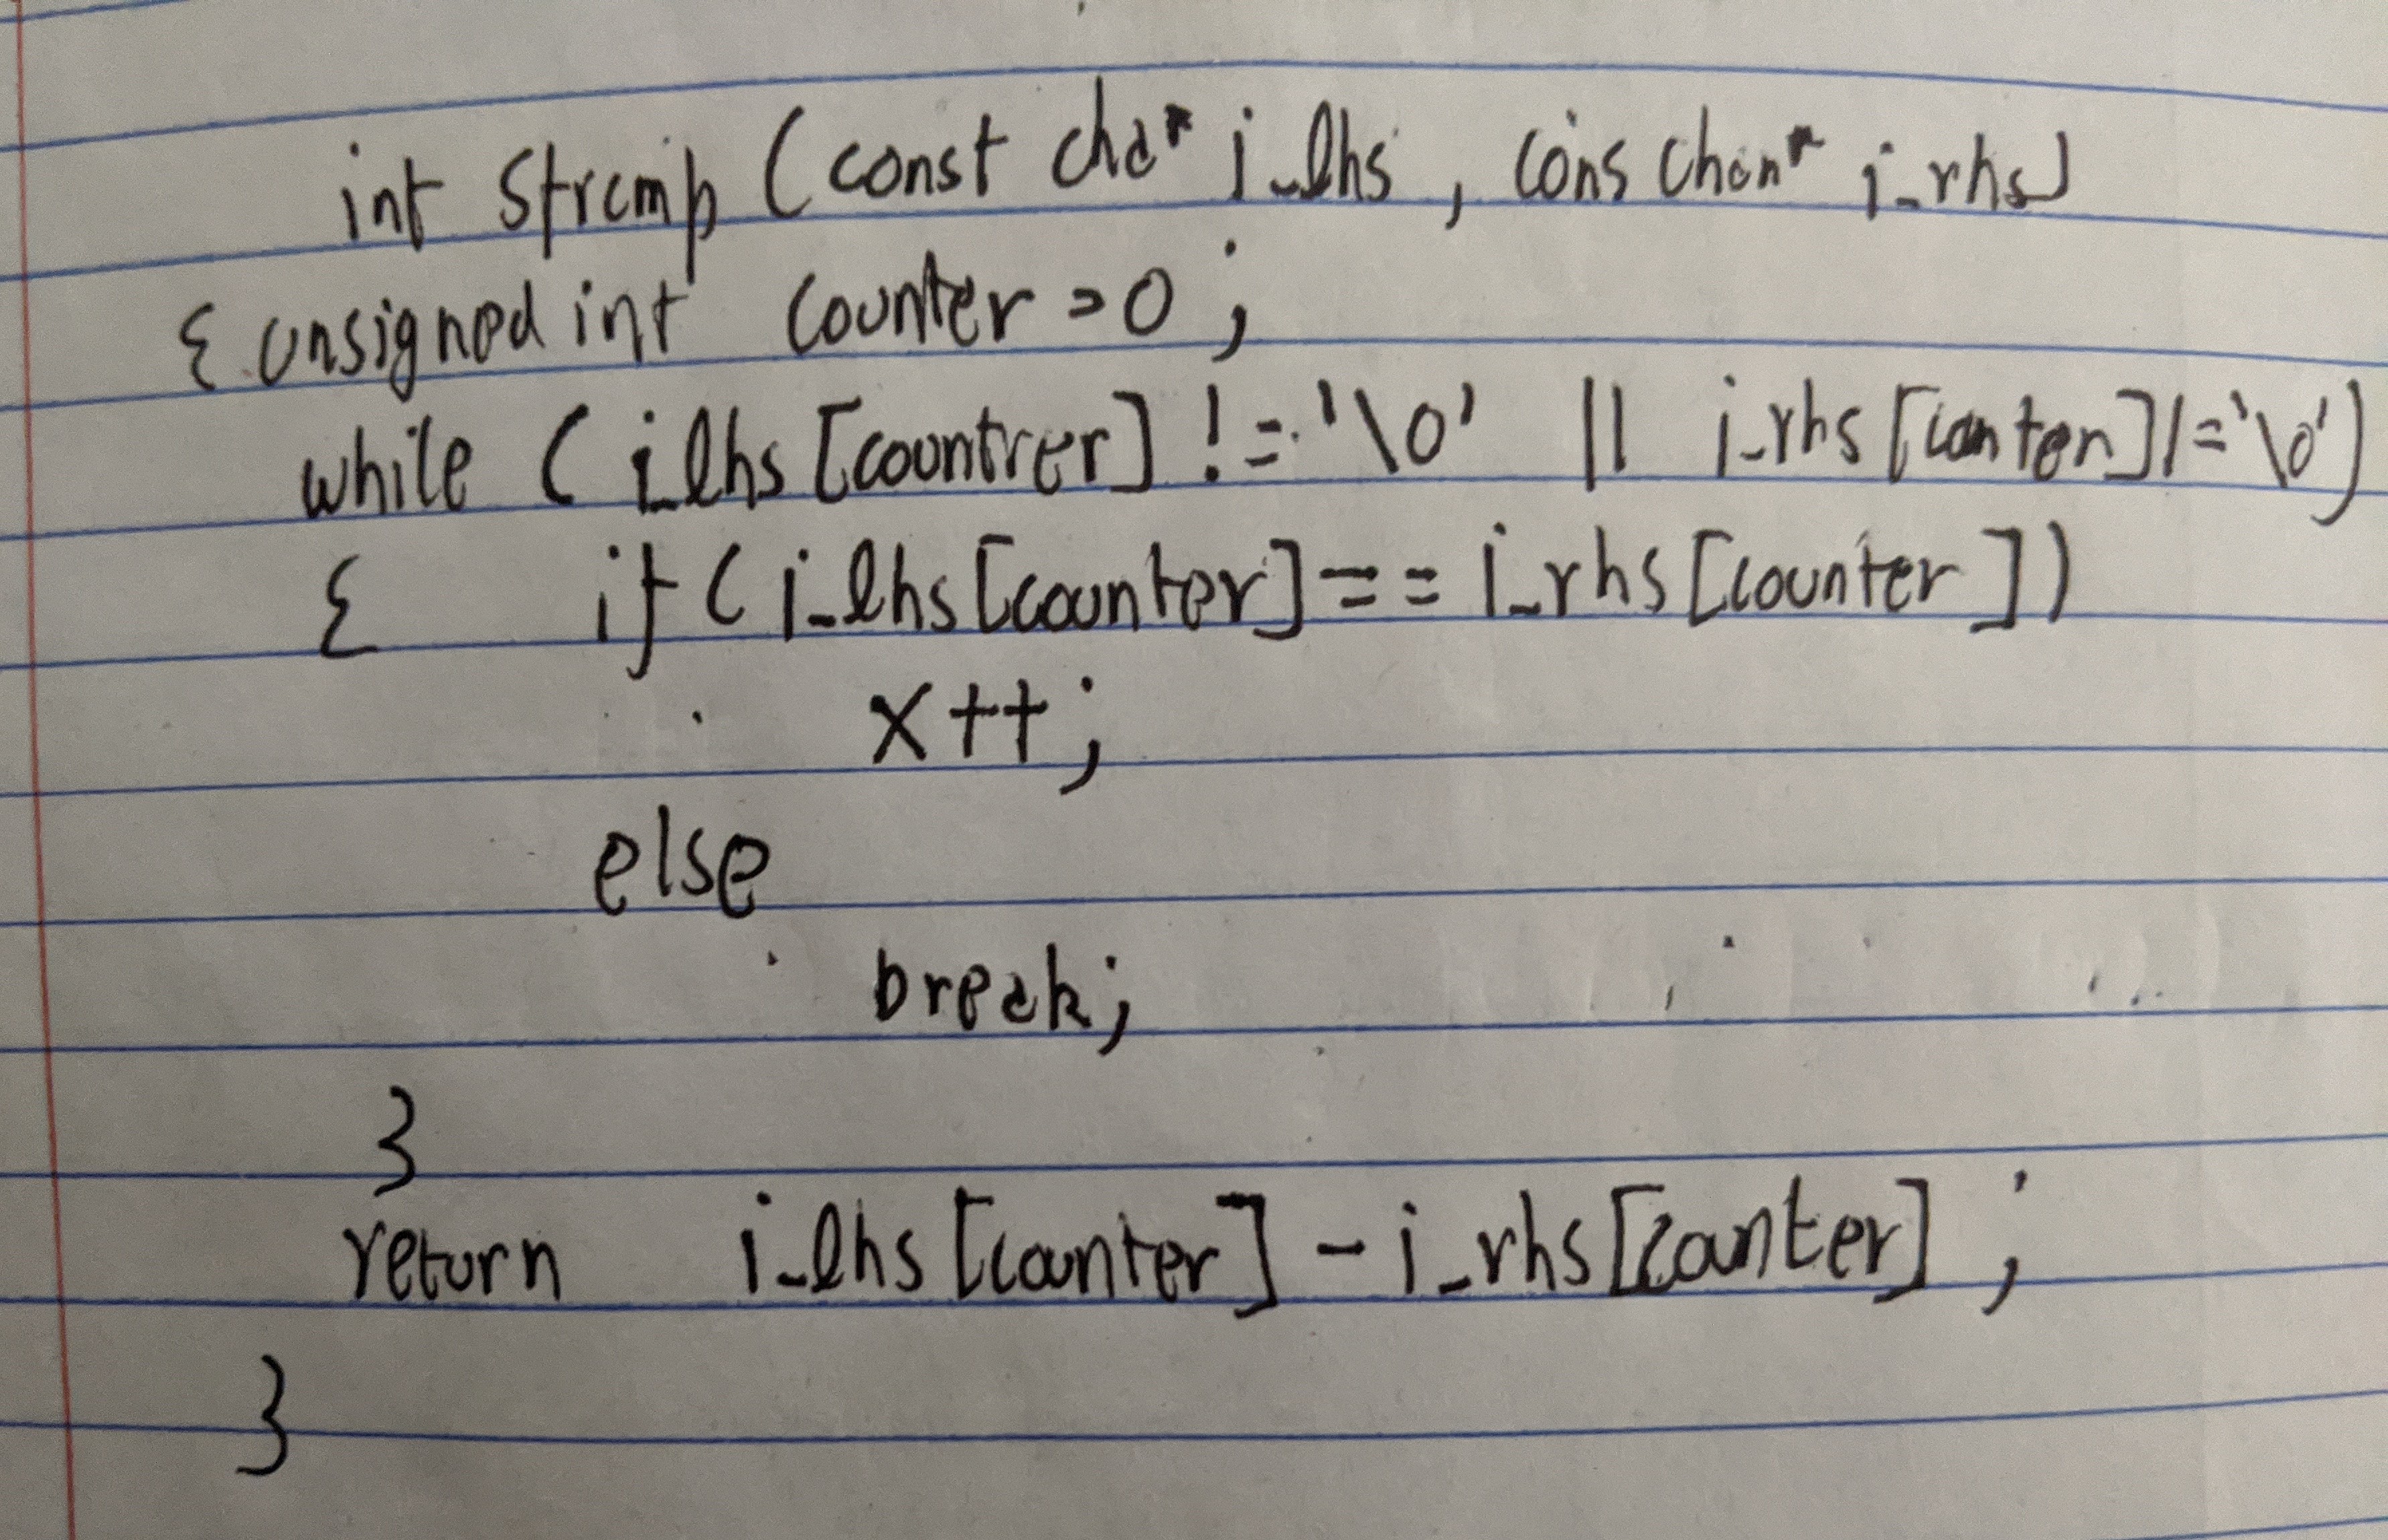 int strcmp (const char* i_lhs, cons char* i_rhs)
{ unsigned int counter = 0;
while (i_lhs[countrer] != '\0' || i_rhs[counter] != '\0')
{ if (i_lhs[counter] == i_rhs[counter])
x++;
else
break;
}
return i_lhs[counter] - i_rhs[counter];
}